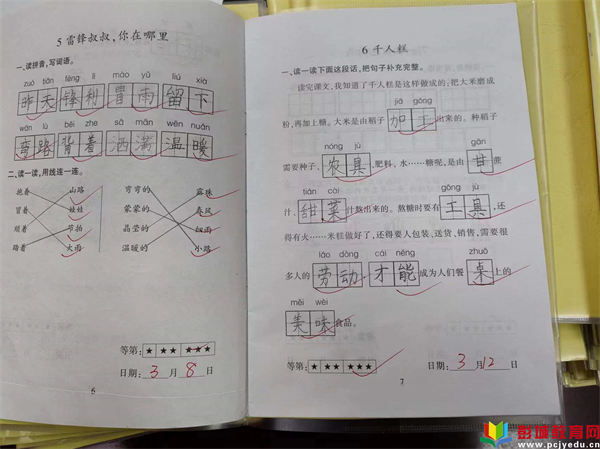 5 雷锋叔叔,你在哪里
一、读拼音,写词语。
zuó tiān fēng lì mào yǔ liú xià
昨天 锋利 冒雨 留下
wān lù bēi zhe sǎ mǎn wēn nuǎn
弯路 背着 洒满 温暖
二、读一读,用线连一连。
抱着 山路 弯弯的 露珠
冒着 娃娃 蒙蒙的 春风
顺着 泥泞 晶莹的 细雨
踏着 大雨 温暖的 小路
等第: ★ ★ ★★★
日期: 3 月 8 日
6
6 千人糕
一、读一读下面这段话,把句子补充完整。
读完课文,我知道了千人糕是这样做成的,把大米磨成
jiā gōng
粉,再加上糖。大米是由稻子 加工 出来的。种稻子
nóng jù gān
需要种子、农具、肥料、水……糖呢,是由 甘 蔗
tián cài
汁、甜菜 汁熬出来的。熬糖时要有 工具,还
得有火……米糕做好了,还得要人包装、送货、销售,需要很
láo dòng cái néng zhuō
多人的 劳动 才能 成为人们餐 桌 上的
měi wèi
美味 食品。
等第: ★ ★ ★★★
日期: 3 月 12 日
7
彭城教育网
www.pcjyedu.cn